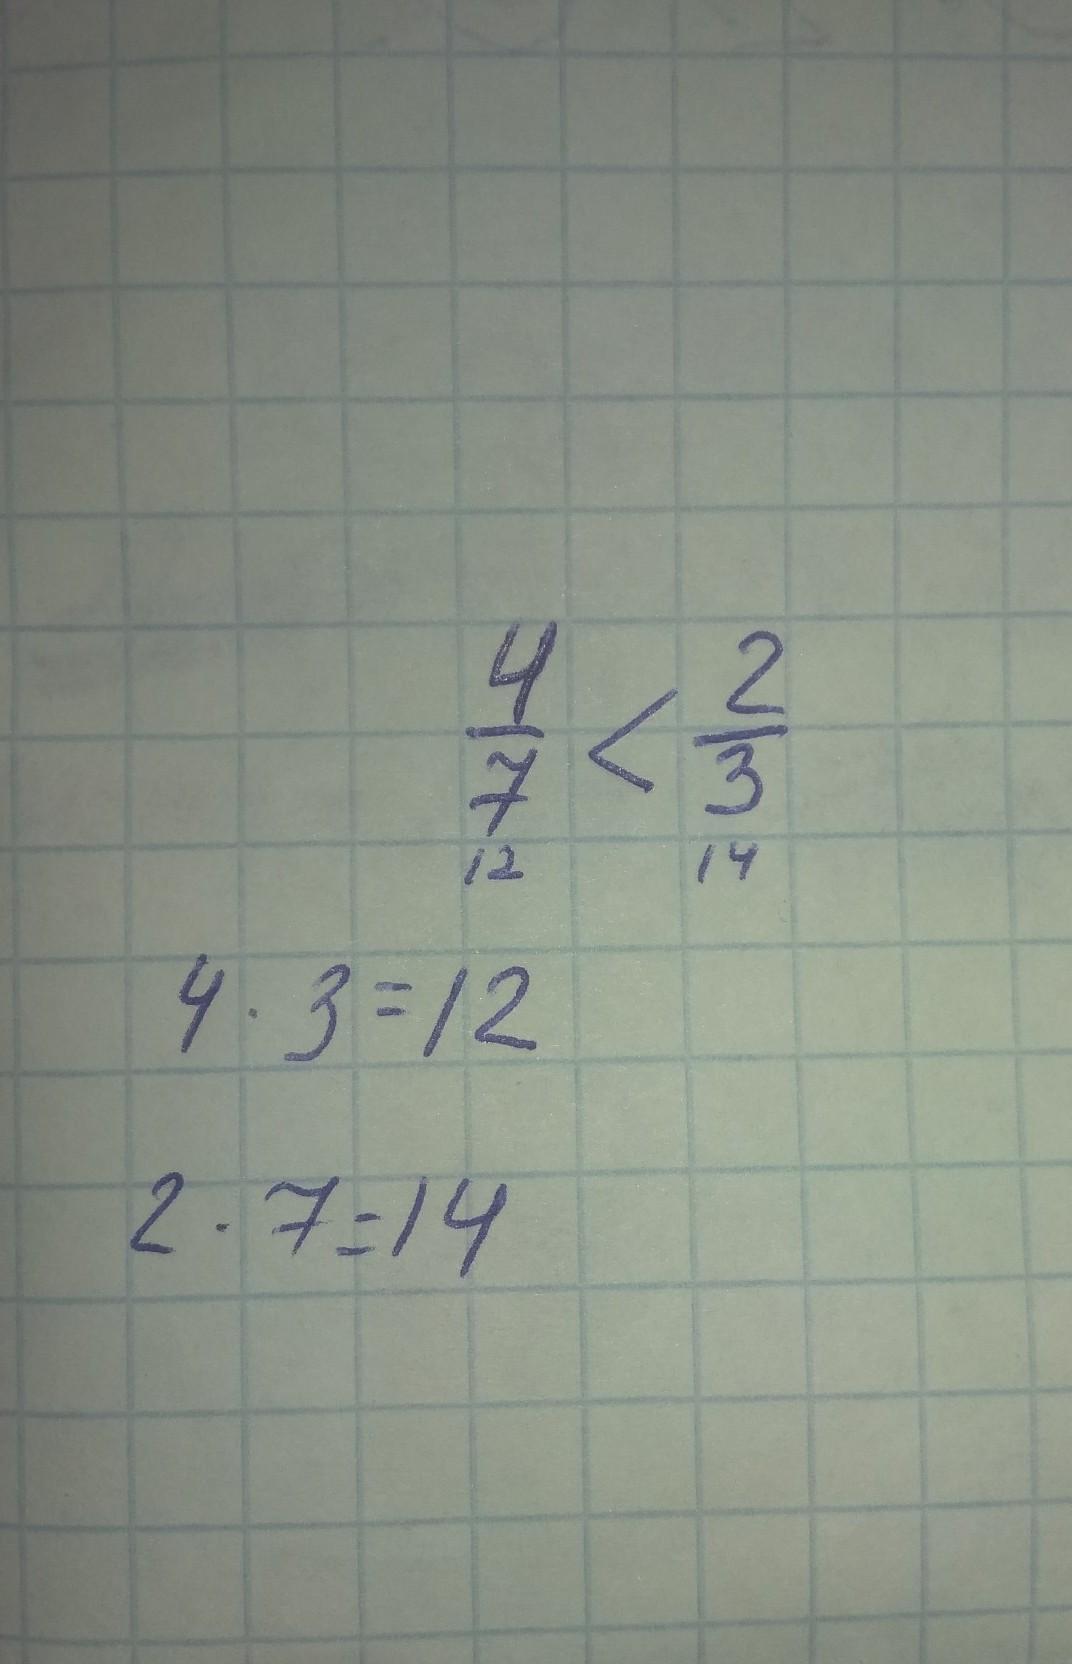 4/7 < 2/3
12 14
4 · 3 = 12
2 · 7 = 14